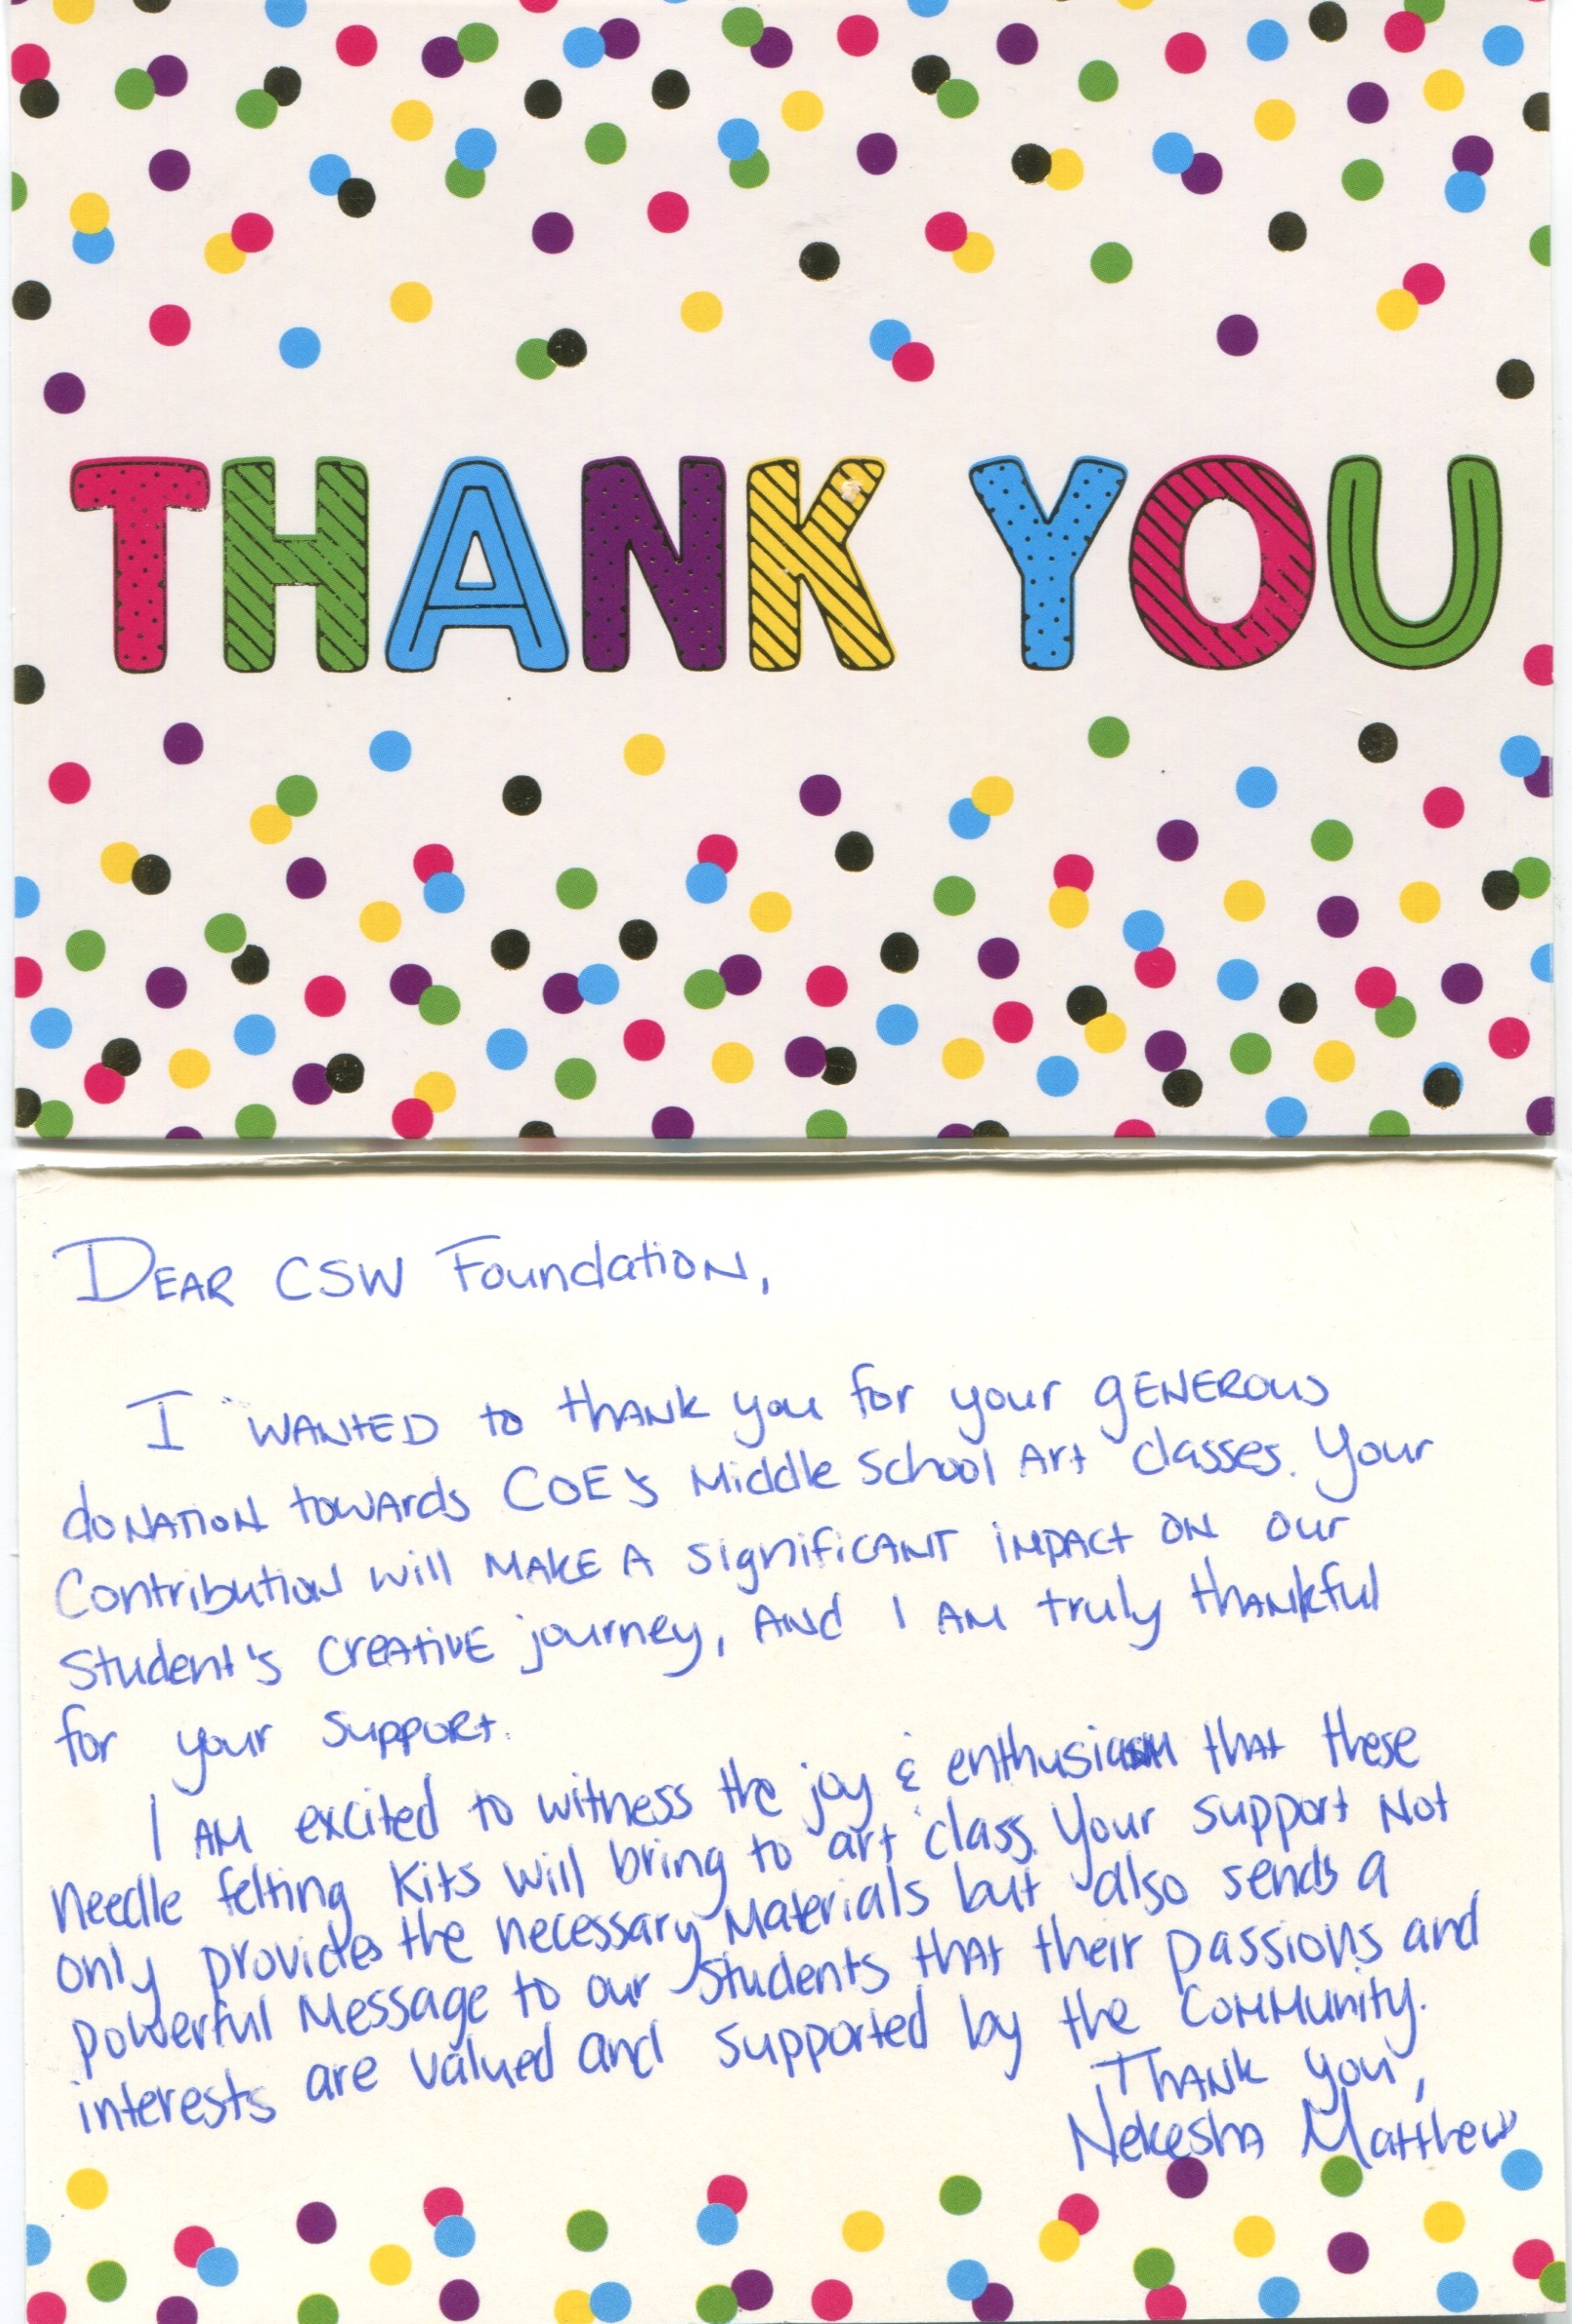 THANK YOU
DEAR CSW Foundation,
I WANTED to thANK you for your gENEROUS
dONATION towARds COE's Middle School Art classes. Your
Contribution will MAKE A significANT iMPACt ON our
Student's CreATivE journey, ANd I AM truly thANkful
for your support.
I AM excited to witness the joy & enthusiasM thAt these
Needle felting Kits will bring to art class. Your support Not
only provides the necessary Materials but also sends a
powerful Message to our students thAt their passions and
interests are valued and supported by the COMMunity.
ThANK you,
Nekesha Matthew